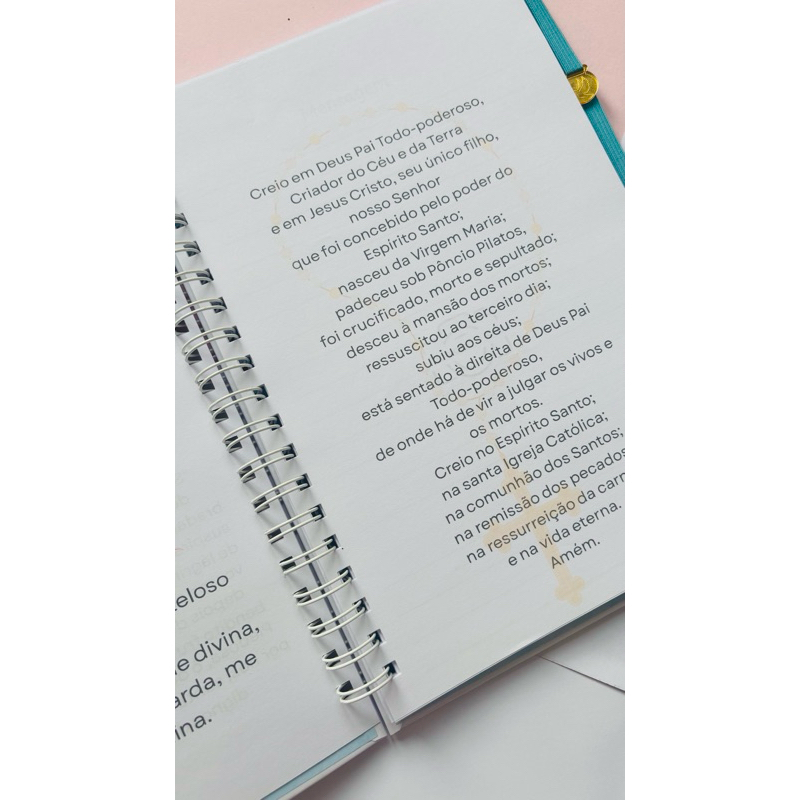 Creio em Deus Pai Todo-poderoso,
Criador do Céu e da Terra
e em Jesus Cristo, seu único filho,
nosso Senhor
que foi concebido pelo poder do
Espírito Santo;
nasceu da Virgem Maria;
padeceu sob Pôncio Pilatos,
foi crucificado, morto e sepultado;
desceu à mansão dos mortos;
ressuscitou ao terceiro dia;
subiu aos céus;
está sentado à direita de Deus Pai
Todo-poderoso,
de onde há de vir a julgar os vivos e
os mortos.
Creio no Espírito Santo;
na santa Igreja Católica;
na comunhão dos Santos;
na remissão dos pecados
na ressurreição da carn
e na vida eterna.
Amém.
eloso
e divina,
arda, me
ina.